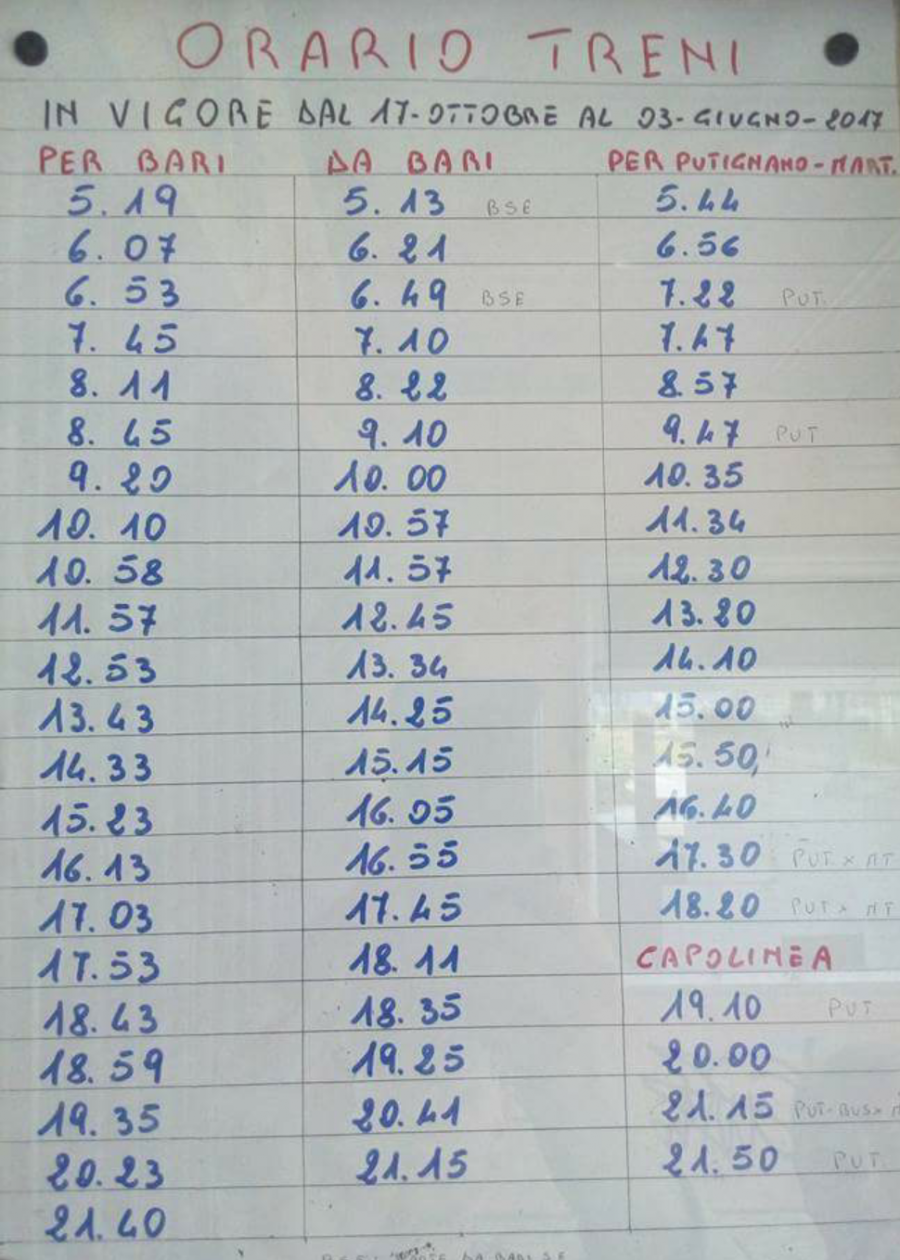 ORARIO TRENI
IN VIGORE DAL 17-OTTOBRE AL 03-GIUGNO-2017
PER BARI DA BARI PER PUTIGNANO-MART.
5.19 5.13 BSE 5.44
6.07 6.21 6.56
6.53 6.49 BSE 7.22 PUT.
7.45 7.10 7.47
8.11 8.22 8.57
8.45 9.10 9.47 PUT
9.20 10.00 10.35
10.10 10.57 11.34
10.58 11.57 12.30
11.57 12.45 13.20
12.53 13.34 14.10
13.43 14.25 15.00
14.33 15.15 15.50
15.23 16.05 16.40
16.13 16.55 17.30 PUT x MT
17.03 17.45 18.20 PUT x MT
17.53 18.11 CAPOLINEA
18.43 18.35 19.10 PUT
18.59 19.25 20.00
19.35 20.41 21.15 PUT-BUS x
20.23 21.15 21.50 PUT.
21.40
DA BARI S.E